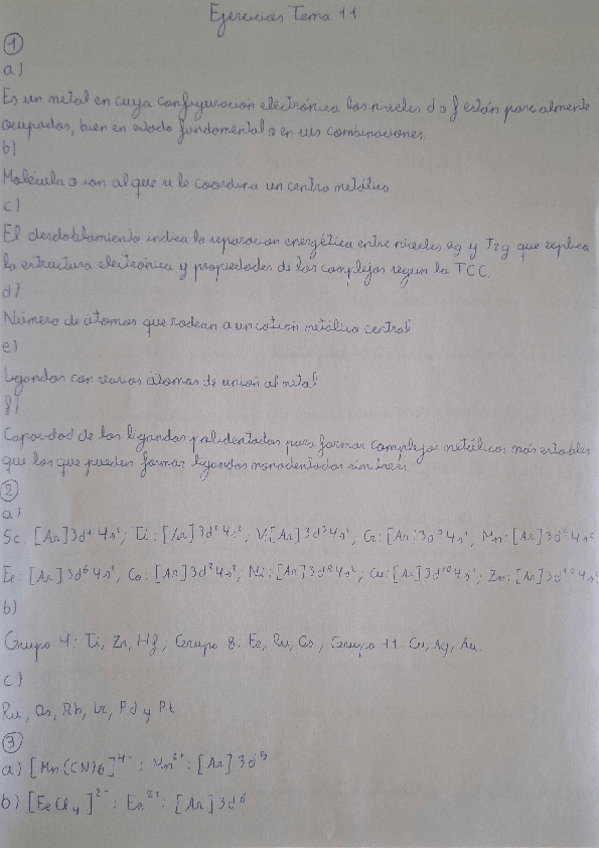 Ejercicios Tema 11
1
a)
Es un metal en cuya configuración electrónica los niveles d o f están parcialmente
ocupados, bien en estado fundamental o en sus combinaciones.
b)
Molécula o ion al que se le coordina un centro metálico
c)
El desdoblamiento indica la separación energética entre niveles eg y T2g que explica
la estructura electrónica y propiedades de los complejos según la TCC.
d)
Número de átomos que rodean a un catión metálico central
e)
Ligandos con varios átomos de unión al metal
f)
Capacidad de los ligandos polidentados para formar complejos metálicos más estables
que los que pueden formar ligandos monodentados similares.
2
a)
Sc: [Ar]3d¹4s²; Ti: [Ar]3d²4s²; V: [Ar]3d³4s²; Cr: [Ar]3d⁵4s¹; Mn: [Ar]3d⁵4s²
Fe: [Ar]3d⁶4s²; Co: [Ar]3d⁷4s²; Ni: [Ar]3d⁸4s²; Cu: [Ar]3d¹⁰4s¹; Zn: [Ar]3d¹⁰4s²
b)
Grupo 4: Ti, Zr, Hf; Grupo 8: Fe, Ru, Os; Grupo 11: Cu, Ag, Au.
c)
Ru, Os, Rh, Ir, Pd y Pt
3
a) [Mn(CN)6]⁴⁻: Mn²⁺: [Ar]3d⁵
b) [FeCl₄]²⁻: Fe²⁺: [Ar]3d⁶